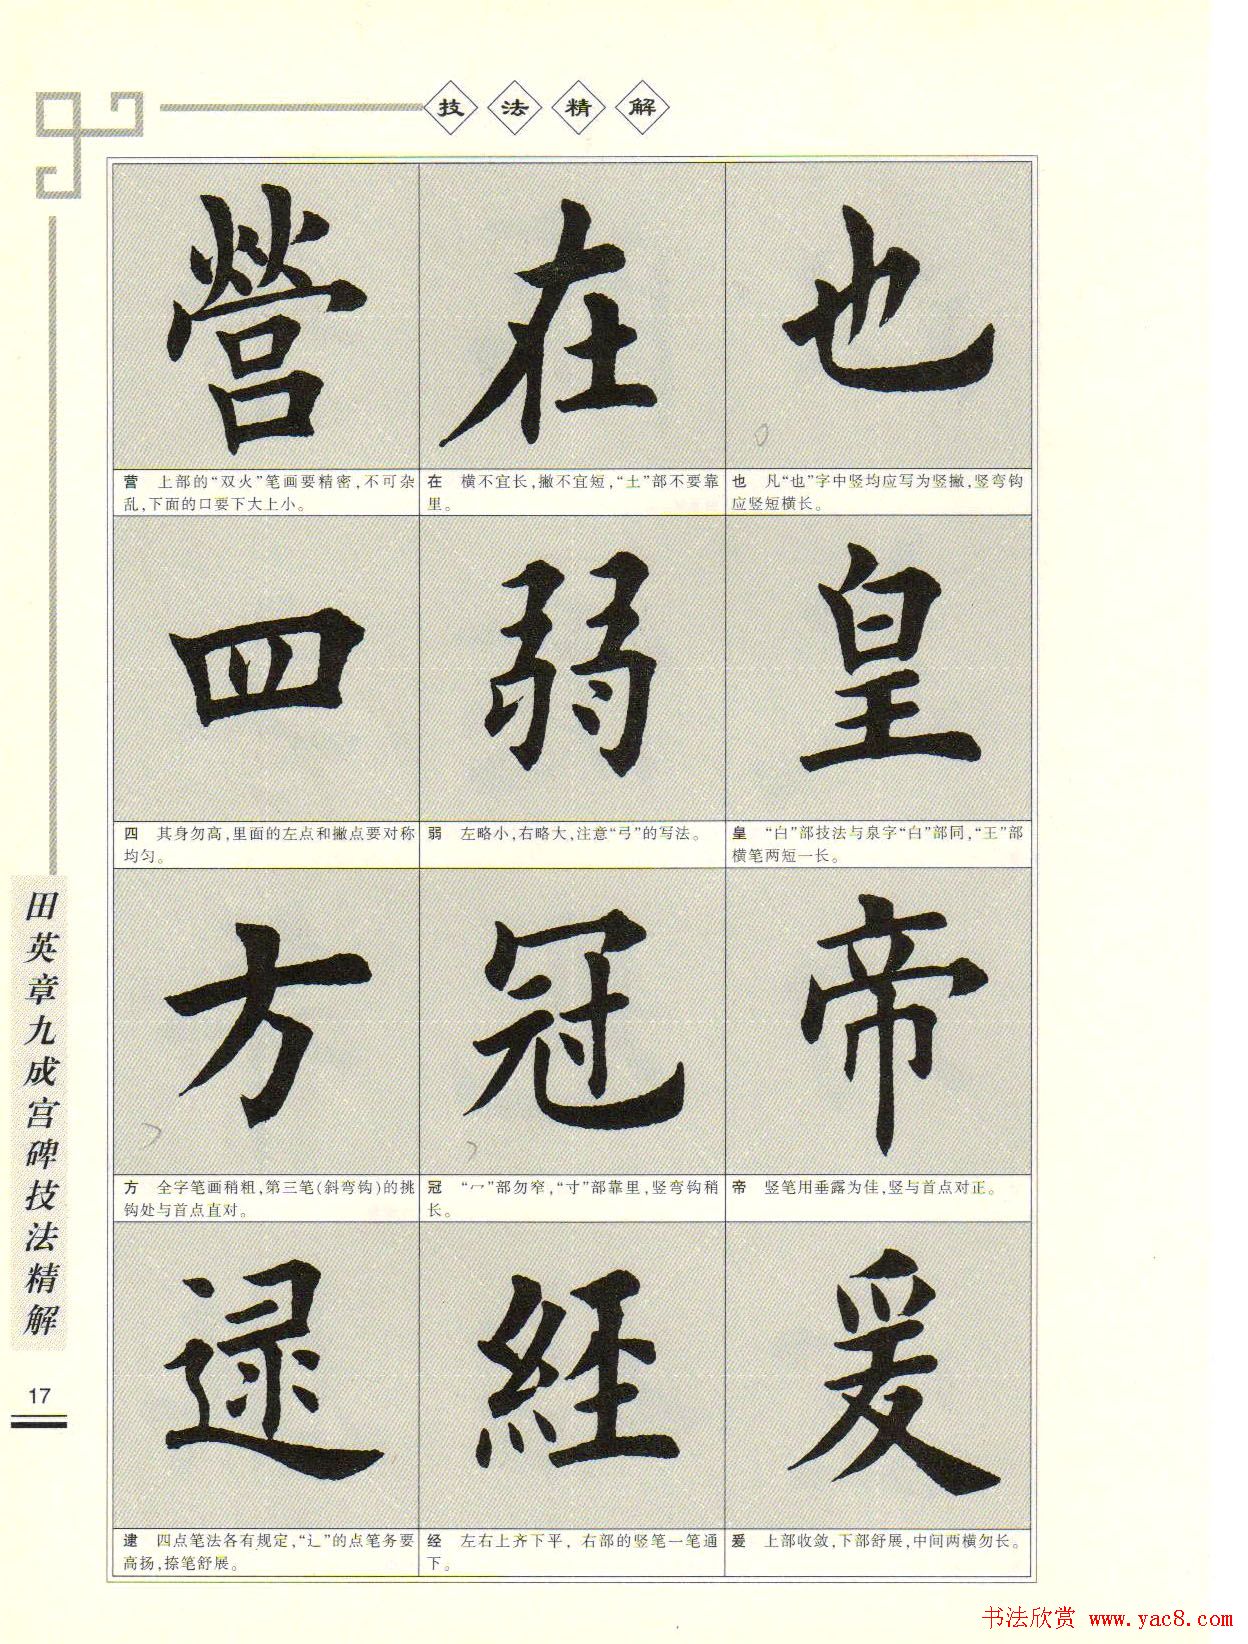 技法精解
營 在 也
营 上部的“双火”笔画要精密，不可杂
乱，下面的口要下大上小。
在 横不宜长，撇不宜短，“土”部不要靠
里。
也 凡“也”字中竖均应写为竖撇，竖弯钩
应竖短横长。
四 弱 皇
四 其身勿高，里面的左点和撇点要对称
均匀。
弱 左略小，右略大，注意“弓”的写法。
皇 “白”部技法与泉字“白”部同，“王”部
横笔两短一长。
方 冠 帝
方 全字笔画稍粗，第三笔（斜弯钩）的挑
钩处与首点直对。
冠 “冖”部勿窄，“寸”部靠里，竖弯钩稍
长。
帝 竖笔用垂露为佳，竖与首点对正。
逮 經 爰
逮 四点笔法各有规定，“辶”的点笔务要
高扬，捺笔舒展。
经 左右上齐下平，右部的竖笔一笔通
下。
爰 上部收敛，下部舒展，中间两横勿长。
田英章九成宫碑技法精解
17
书法欣赏 www.yac8.com